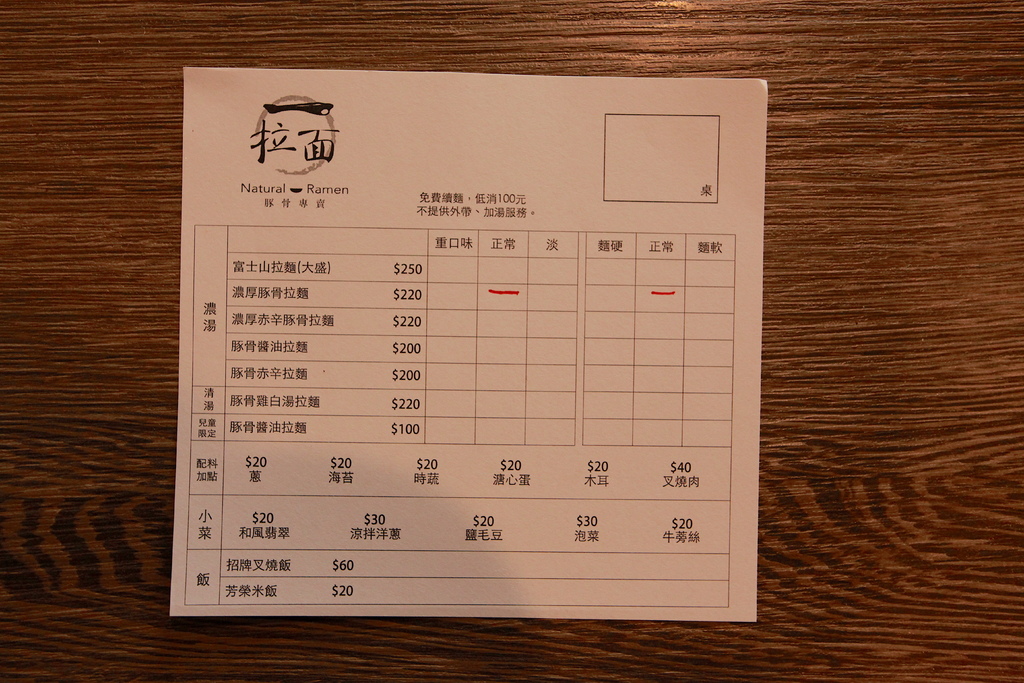 拉面
Natural Ramen
豚骨專賣
桌
免費續麵，低消100元
不提供外帶、加湯服務。
重口味 正常 淡 麵硬 正常 麵軟
濃湯
富士山拉麵(大盛) $250
濃厚豚骨拉麵 $220
濃厚赤辛豚骨拉麵 $220
豚骨醬油拉麵 $200
豚骨赤辛拉麵 $200
清湯
豚骨雞白湯拉麵 $220
兒童限定
豚骨醬油拉麵 $100
配料加點
$20 $20 $20 $20 $20 $40
蔥 海苔 時蔬 溏心蛋 木耳 叉燒肉
小菜
$20 $30 $20 $30 $20
和風翡翠 涼拌洋蔥 鹽毛豆 泡菜 牛蒡絲
飯
招牌叉燒飯 $60
芳榮米飯 $20